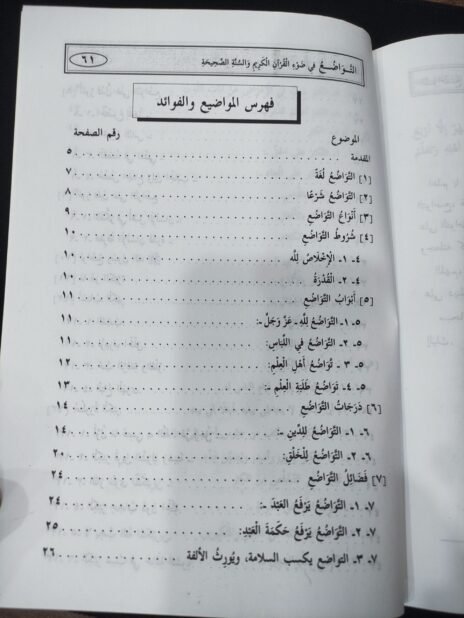 التَّوَاضُعُ فِي ضَوْءِ الْقُرْآنِ الْكَرِيمِ وَالسُّنَّةِ الصَّحِيحَةِ ٦١
فهرس المواضيع والفوائد
الموضوع رقم الصفحة
المقدمة ٥
[١] التَّوَاضُعُ لُغَةً ٧
[٢] التَّوَاضُعُ شَرْعًا ٨
[٣] أَنْوَاعُ التَّوَاضُعِ ٩
[٤] شُرُوطُ التَّوَاضُعِ ١٠
٤- ١- الْإِخْلَاصُ لِلَّهِ ١٠
٤- ٢- الْقُدْرَةُ ١٠
[٥] أَبْوَابُ التَّوَاضُعِ ١١
٥- ١- التَّوَاضُعُ لِلَّهِ - عَزَّ وَجَلَّ -: ١١
٥- ٢- التَّوَاضُعُ فِي اللِّبَاسِ: ١١
٥- ٣- تَوَاضُعُ أَهْلِ الْعِلْمِ: ١٢
٥- ٤- تَوَاضُعُ طَلَبَةِ الْعِلْمِ -: ١٣
[٦] دَرَجَاتُ التَّوَاضُعِ ١٤
٦- ١- التَّوَاضُعُ لِلدِّينِ -: ١٤
٦- ٢- التَّوَاضُعُ لِلْخَلْقِ: ٢٠
[٧] فَضَائِلُ التَّوَاضُعِ ٢٤
٧- ١- التَّوَاضُعُ يَرْفَعُ الْعَبْدَ -: ٢٤
٧- ٢- التَّوَاضُعُ يَرْفَعُ حَكَمَةَ الْعَبْدِ: ٢٥
٧- ٣- التواضع يكسب السلامة، ويُورِثُ الألفة ٢٦